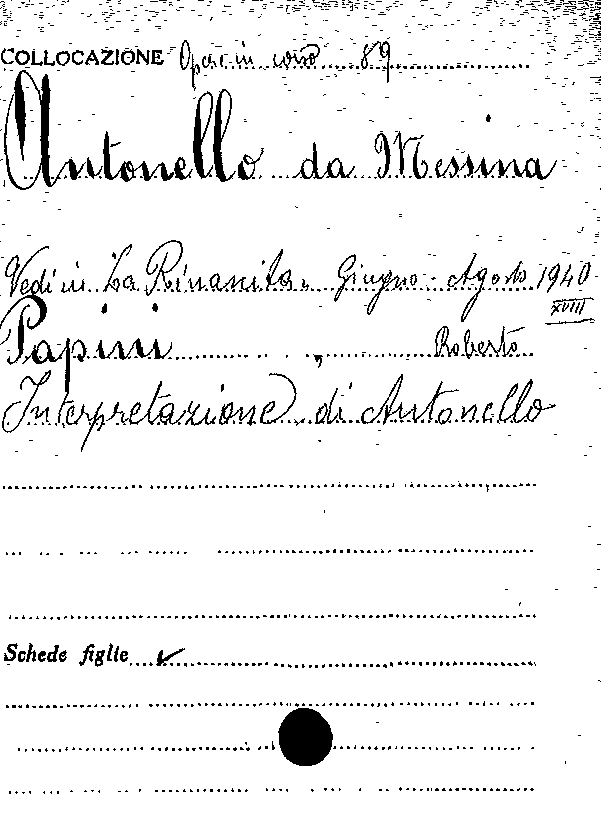 COLLOCAZIONE Opere in corso 89
Antonello da Messina
Vedi in La Rinascita. Giugno - Agosto 1940
XVIII
Papini, Roberto
Interpretazione di Antonello
Schede figlie ✓